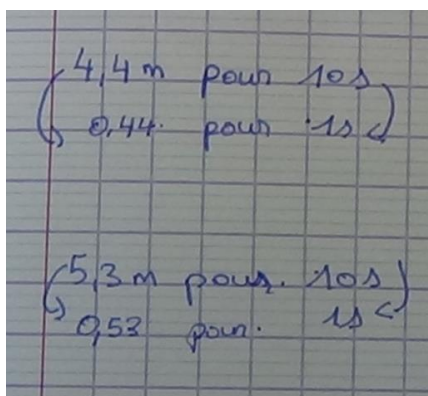 4,4 m pour 10 s
0,44 pour 1s
5,3 m pour 10 s
0,53 pour 1s